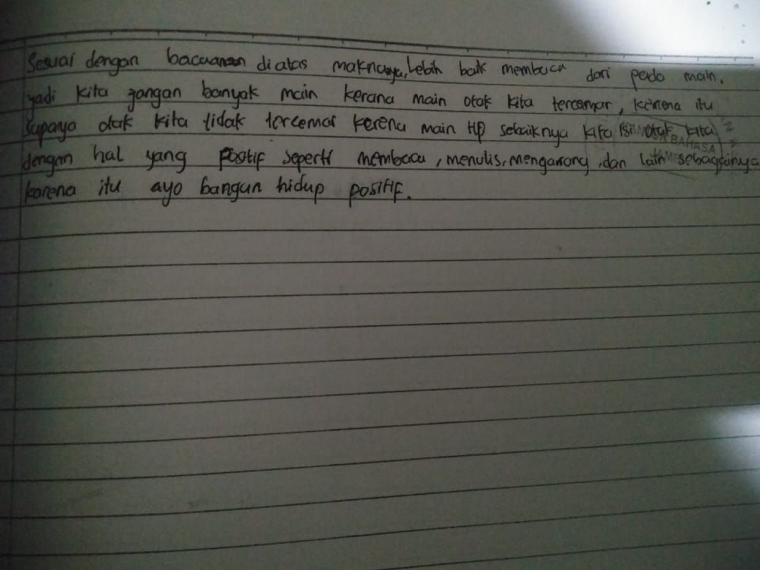 Sesuai dengan bacaanan diatas maknanya, Lebih baik membaca dari pada main.
yadi kita jangan banyak main kerana main otak kita tercemar, karena itu
supaya otak kita tidak tercemar kerena main HP sebaiknya kita isi otak kita
dengan hal yang positif seperti membaca, menulis, mengarang, dan lain sebagainya
karena itu ayo bangun hidup positif.
BAHASA